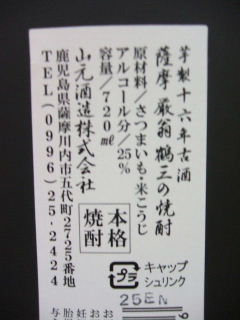 芋製十六年古酒
薩摩 厳翁 鶴三の焼酎
原材料/さつまいも・米こうじ
アルコール分/25%
容量/720㎖
山元酒造株式会社
鹿児島県薩摩川内市五代町2725番地
TEL(0996)25-2424
本格
焼酎
プラ
キャップ
シュリンク
25EN